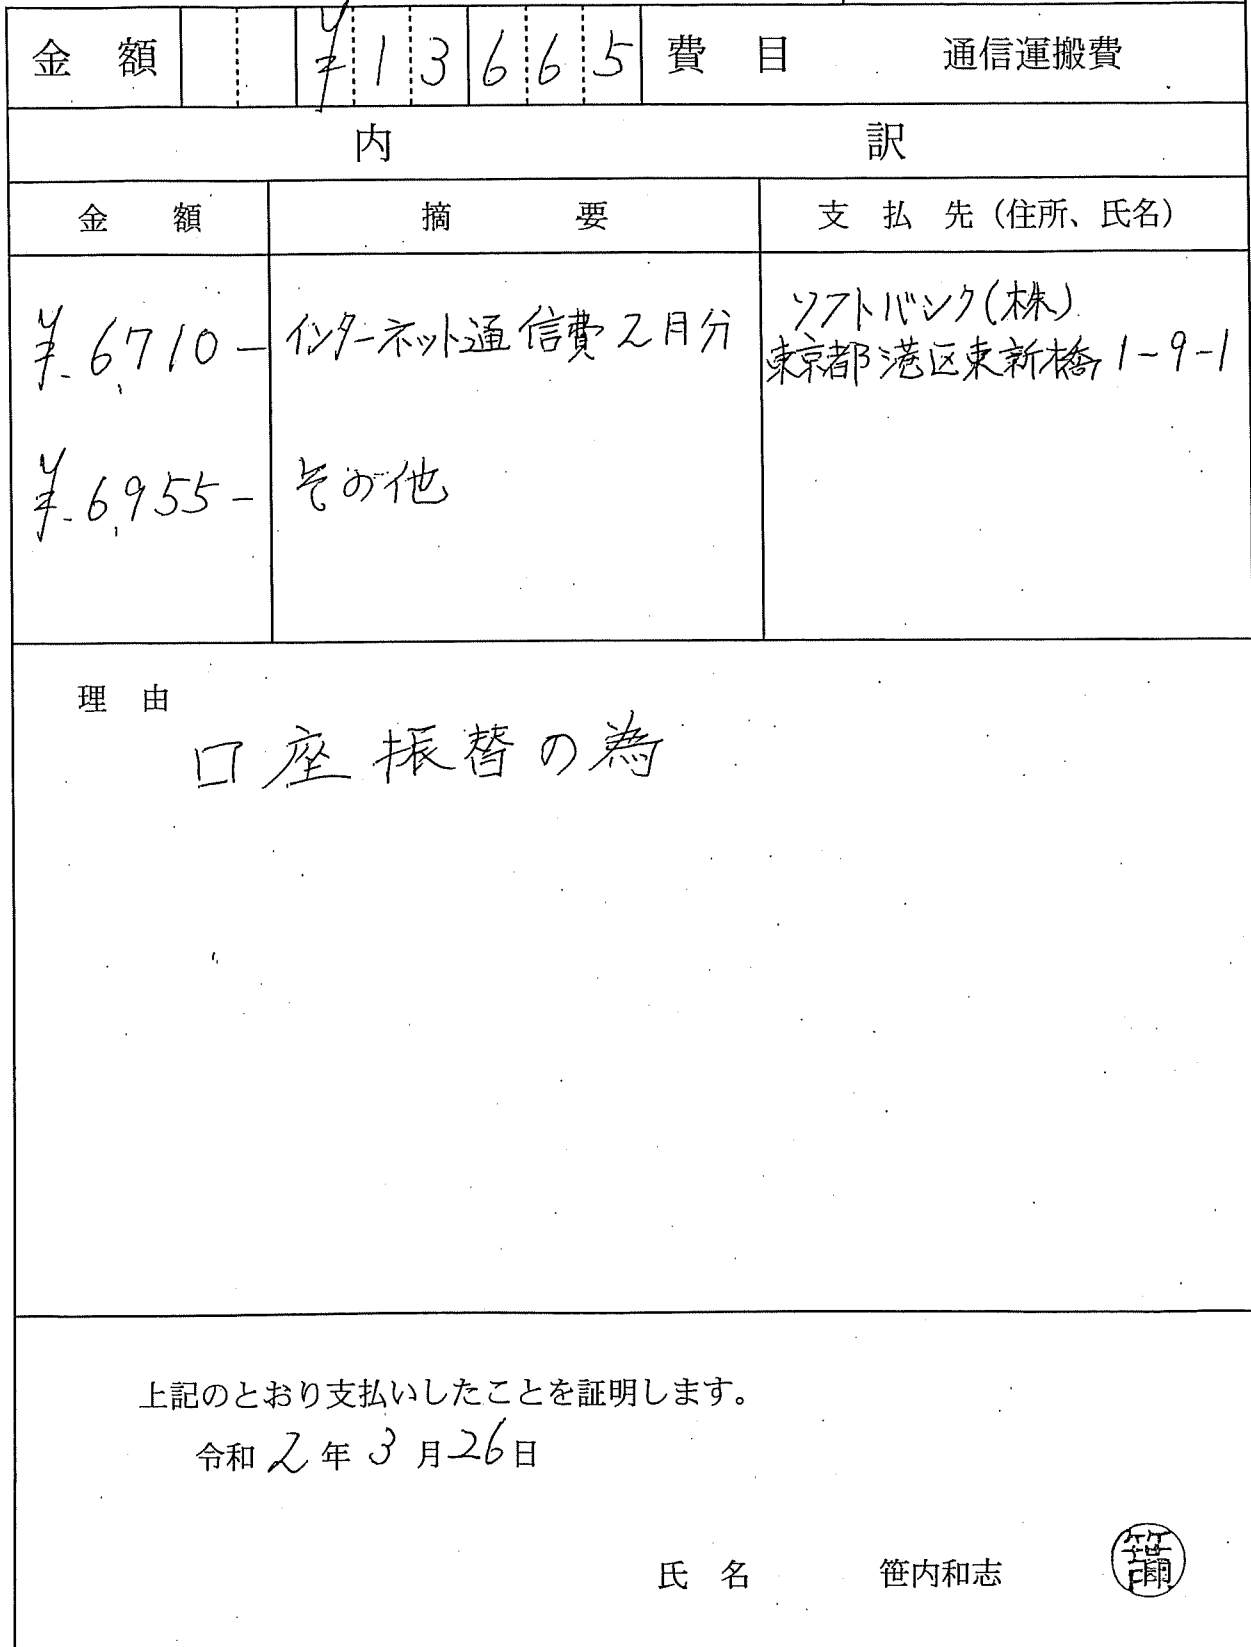 金額 ¥13665 費目 通信運搬費
内訳
金額 摘要 支払先（住所、氏名）
¥6,710- インターネット通信費2月分 ソフトバンク(株)
東京都港区東新橋1-9-1
¥6,955- その他
理由
口座振替の為
上記のとおり支払いしたことを証明します。
令和2年3月26日
氏名 笹内和志